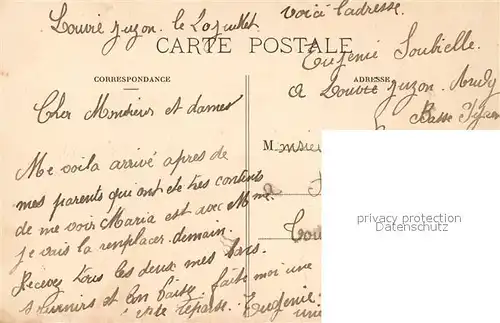 Louvie Juzon. le 20 juillet
Voici l'adresse.
CARTE POSTALE
Eugenie Soubielle.
a Louvie Juzon. Arudy
Basse
CORRESPONDANCE
ADRESSE
Cher Monsieur et dames
Monsieur
Me voila arrivé apres de
mes parents qui ont ete tres contents
de me voir Maria est avec Mme.
je vais la remplacer demain.
Recevez tous les deux mes bons
souvenirs et bon baiser. faite moi une
vite reponse. Eugenie
a
privacy protection
Datenschutz